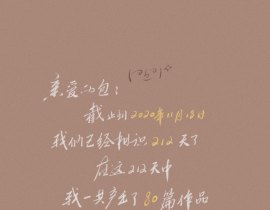 亲爱的包：
截止到2020年11月18日
我们已经相识212天了
在这212天中
我一共产出了80篇作品